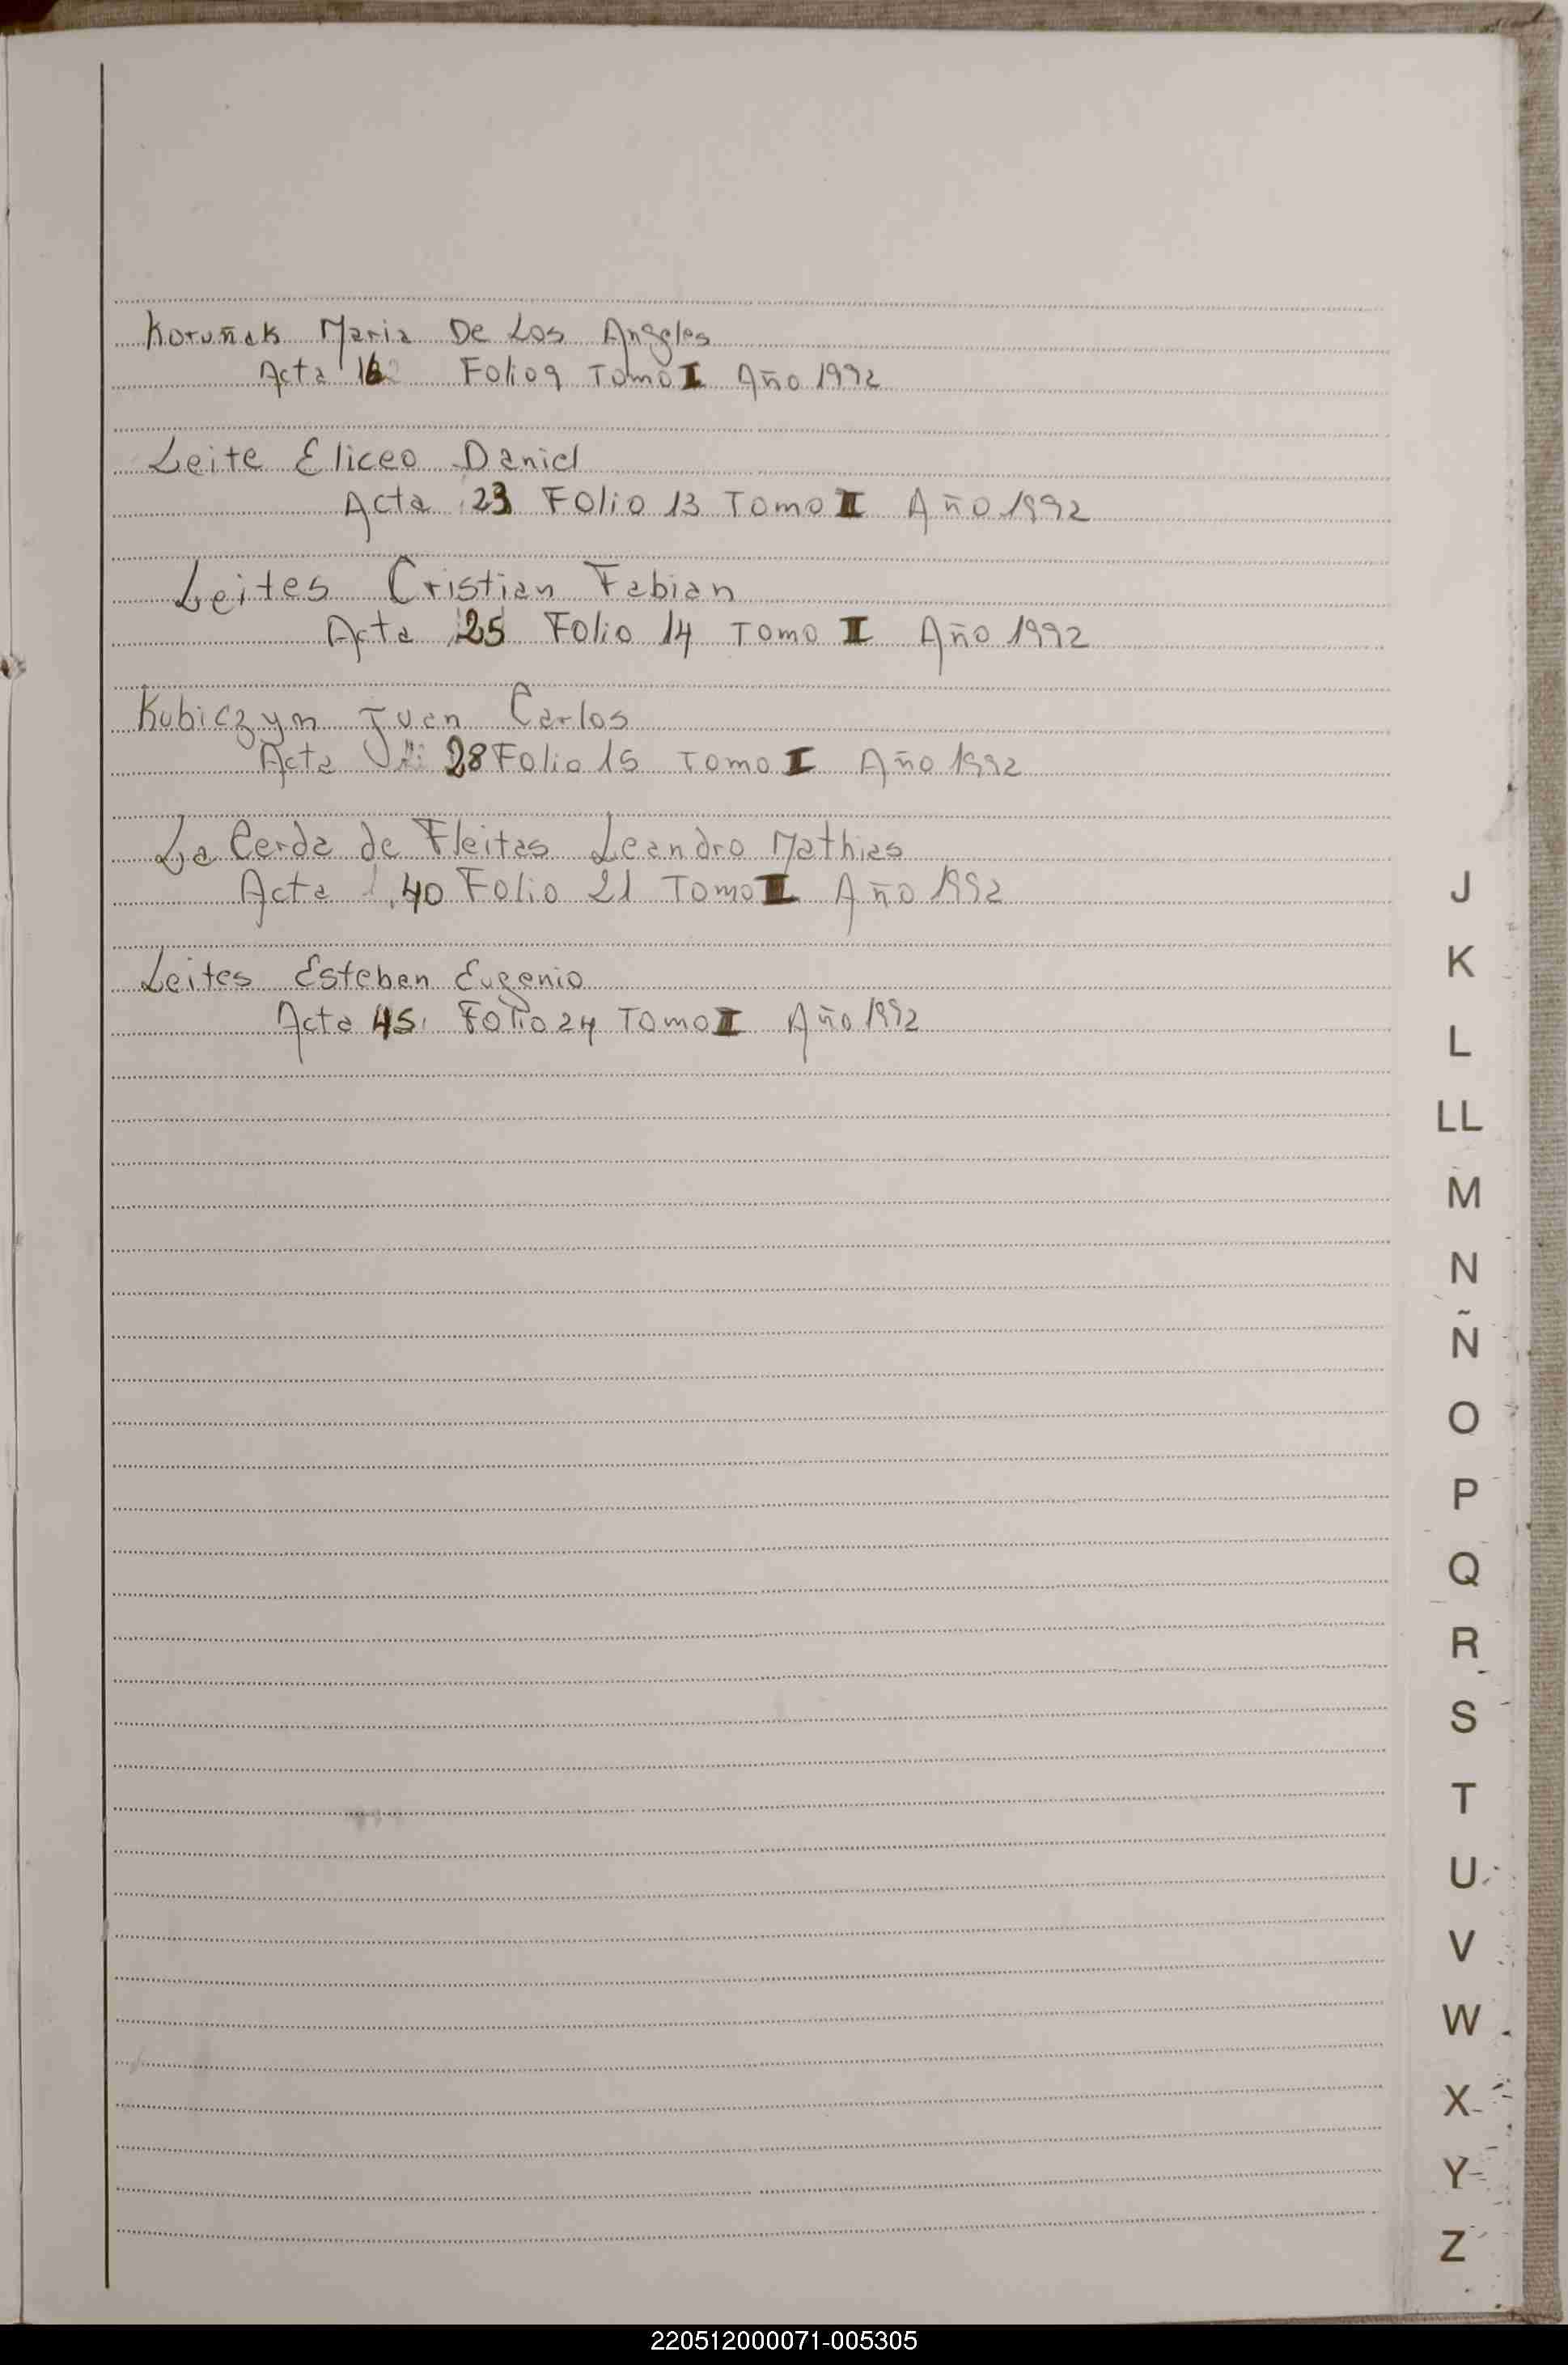 Koruñak Maria De Los Angeles
Acta 16 Folio 9 Tomo I Año 1992
Leite Eliceo Daniel
Acta 23 Folio 13 Tomo II Año 1992
Leites Cristian Fabian
Acta 25 Folio 14 Tomo II Año 1992
Kubiczyn Juan Carlos
Acta 28 Folio 15 Tomo I Año 1992
La Cerda de Fleitas Leandro Mathias
Acta 40 Folio 21 Tomo II Año 1992
Leites Esteban Eugenio
Acta 45 Folio 24 Tomo II Año 1992
J
K
L
LL
M
N
Ñ
O
P
Q
R
S
T
U
V
W
X
Y
Z
220512000071-005305